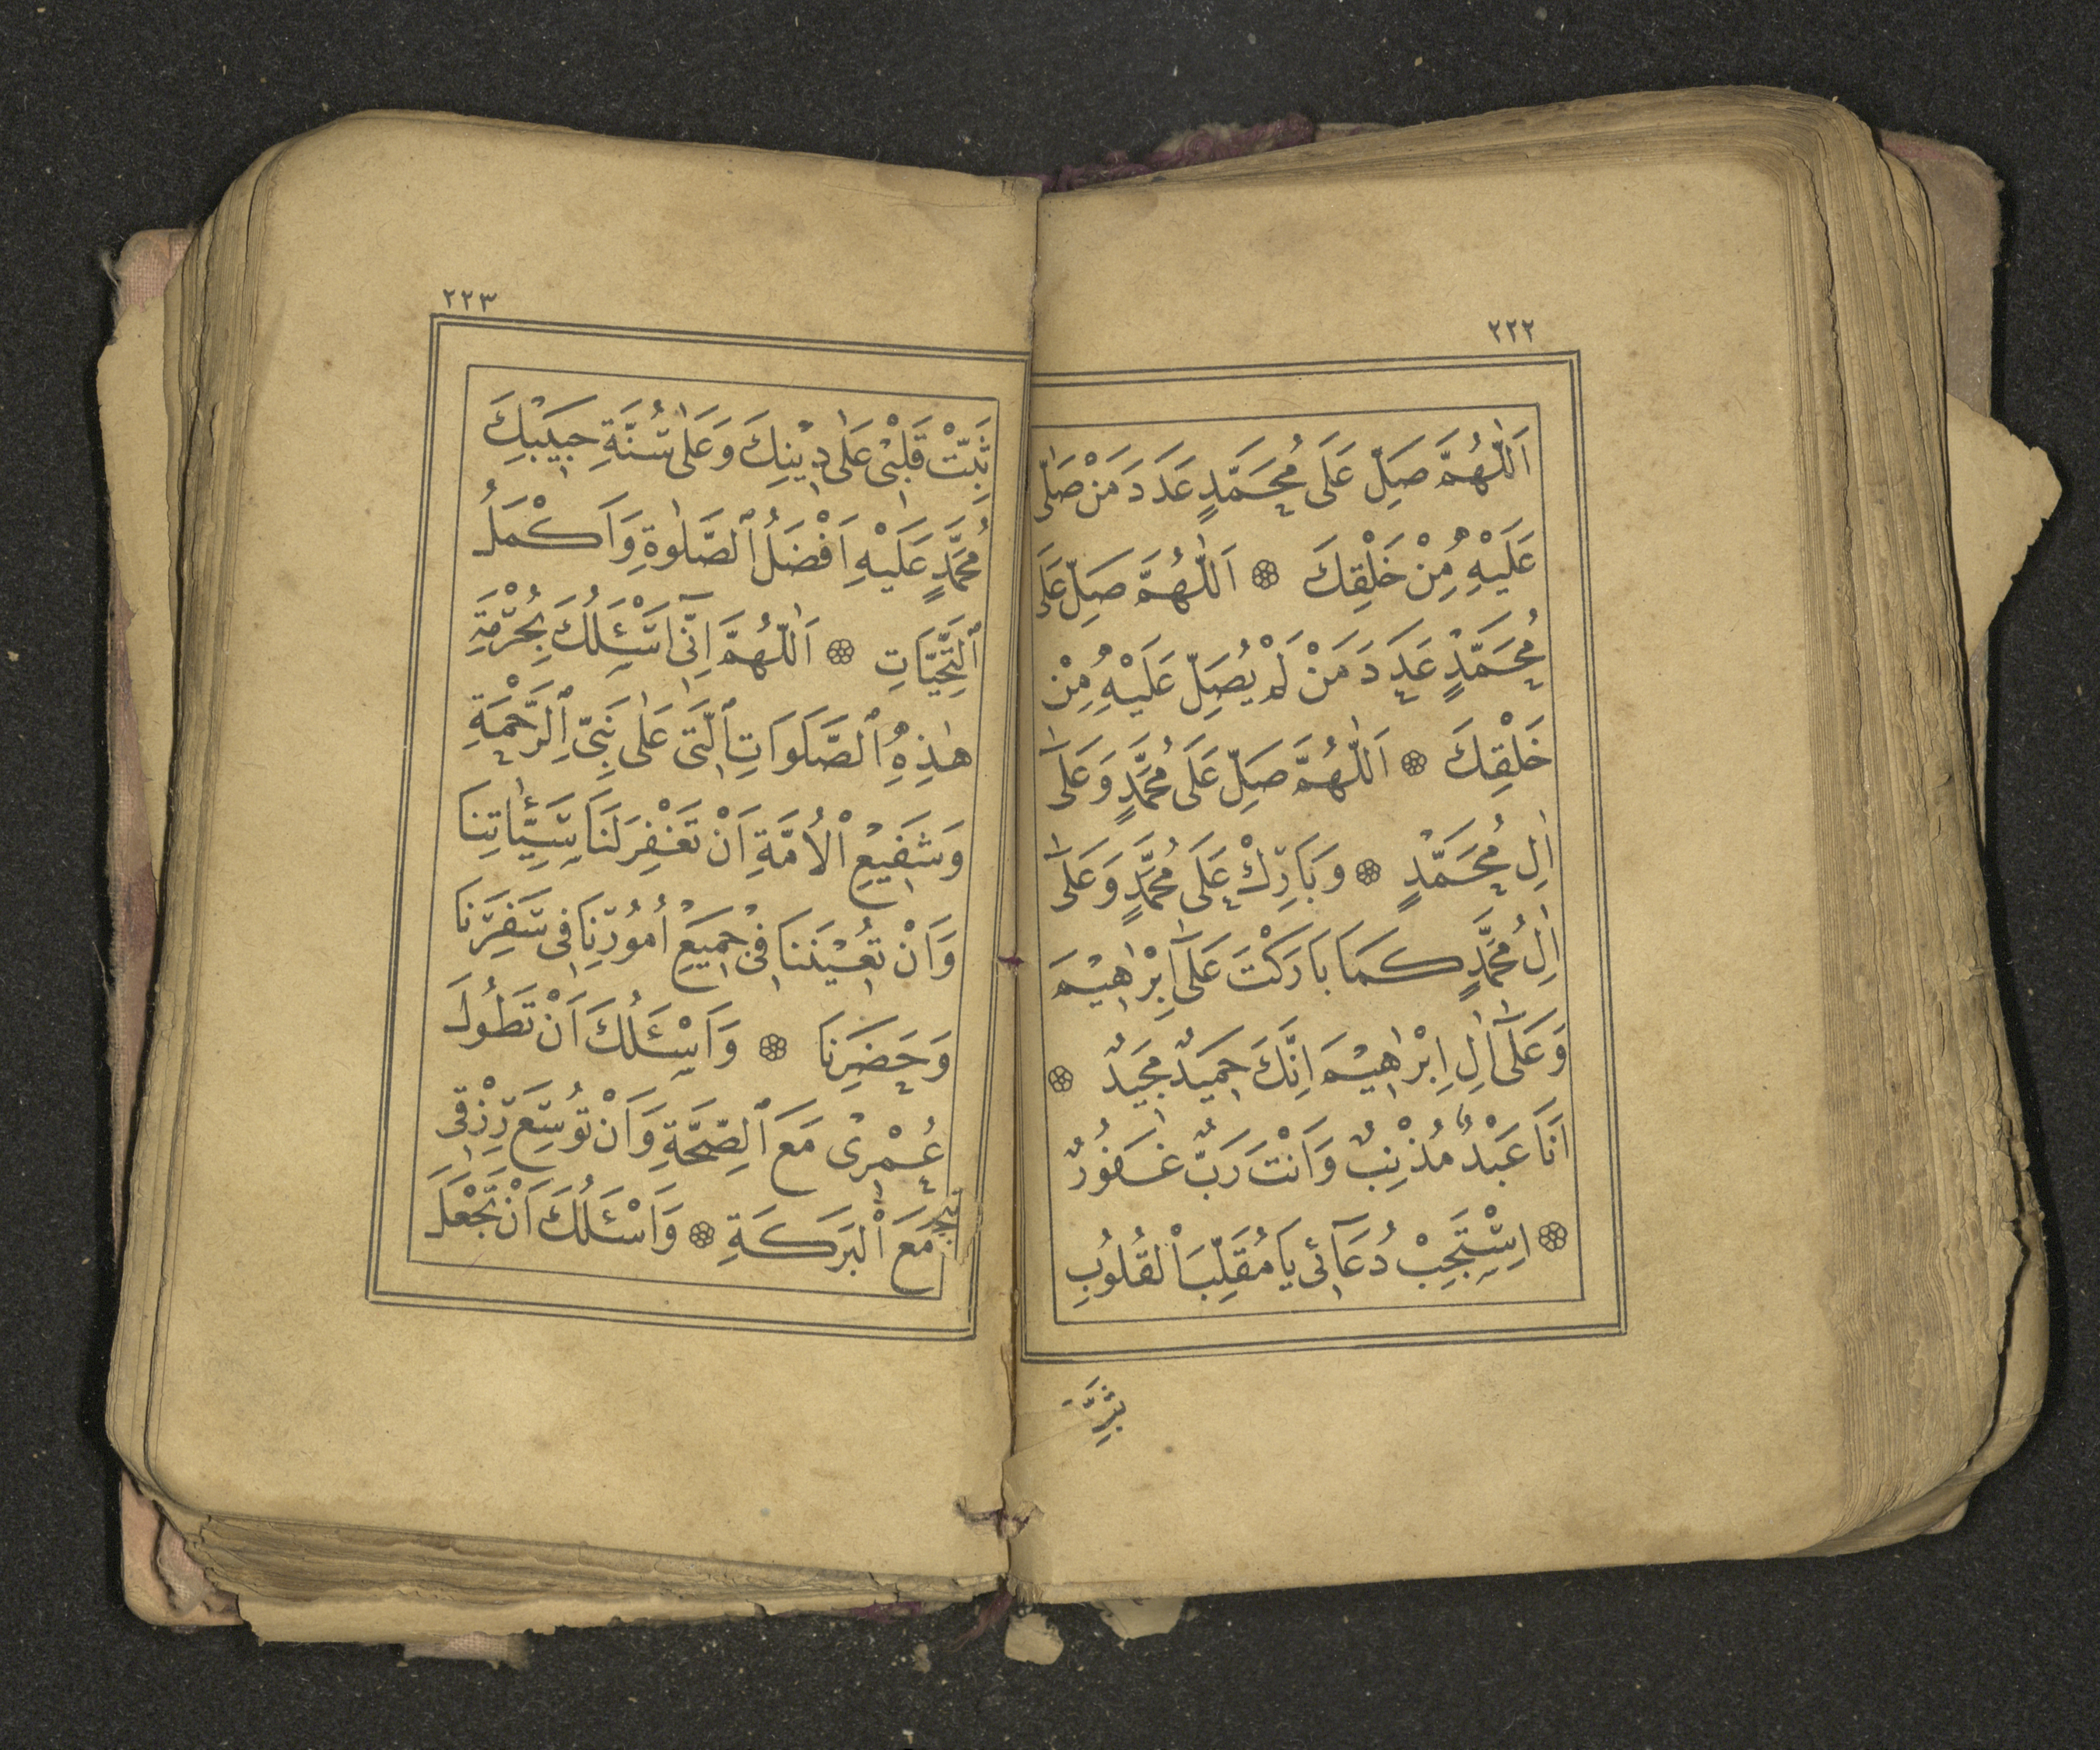 ٢٢٢
اَللّٰهُمَّ صَلِّ عَلَى مُحَمَّدٍ عَدَدَ مَنْ صَلّٰى
عَلَيْهِ مِنْ خَلْقِكَ ۞ اَللّٰهُمَّ صَلِّ عَلَى
مُحَمَّدٍ عَدَدَ مَنْ لَمْ يُصَلِّ عَلَيْهِ مِنْ
خَلْقِكَ ۞ اَللّٰهُمَّ صَلِّ عَلَى مُحَمَّدٍ وَعَلٰٓى
اٰلِ مُحَمَّدٍ ۞ وَبَارِكْ عَلَى مُحَمَّدٍ وَعَلٰٓى
اٰلِ مُحَمَّدٍ كَمَا بَارَكْتَ عَلٰٓى اِبْرٰاهِيْمَ
وَعَلٰٓى اٰلِ اِبْرٰاهِيْمَ اِنَّكَ حَمِيدٌ مَجِيدٌ ۞
اَنَا عَبْدٌ مُذْنِبٌ وَاَنْتَ رَبٌّ غَفُورٌ
۞ اِسْتَجِبْ دُعَآئِى يَا مُقَلِّبَ اْلقُلُوبِ
ثَبِّتْ
٢٢٣
ثَبِّتْ قَلْبِىْ عَلٰى دِيْنِكَ وَعَلٰى سُنَّةِ حَبِيْبِكَ
مُحَمَّدٍ عَلَيْهِ اَفْضَلُ ٱلصَّلٰوةِ وَاَكْمَلُ
ٱلتَّحِيَّاتِ ۞ اَللّٰهُمَّ اِنِّىٓ اَسْئَلُكَ بِحُرْمَةِ
هٰذِهِ ٱلصَّلَوَاتِ ٱلَّتِى عَلٰى نَبِىِّ ٱلرَّحْمَةِ
وَشَفِيْعِ اْلاُمَّةِ اَنْ تَغْفِرَ لَنَا سَيِّئٰاتِنَا
وَاَنْ تُعِيْنَنَا فِىْ جَمِيْعِ اُمُورِنَا فِى سَفَرِنَا
وَحَضَرِنَا ۞ وَاَسْئَلُكَ اَنْ تَطُولَ
عُمْرِىْ مَعَ ٱلصِّحَّةِ وَاَنْ تُوَسِّعَ رِزْقِى
مَعَ اْلبَرَكَةِ ۞ وَاَسْئَلُكَ اَنْ تَجْعَلَ